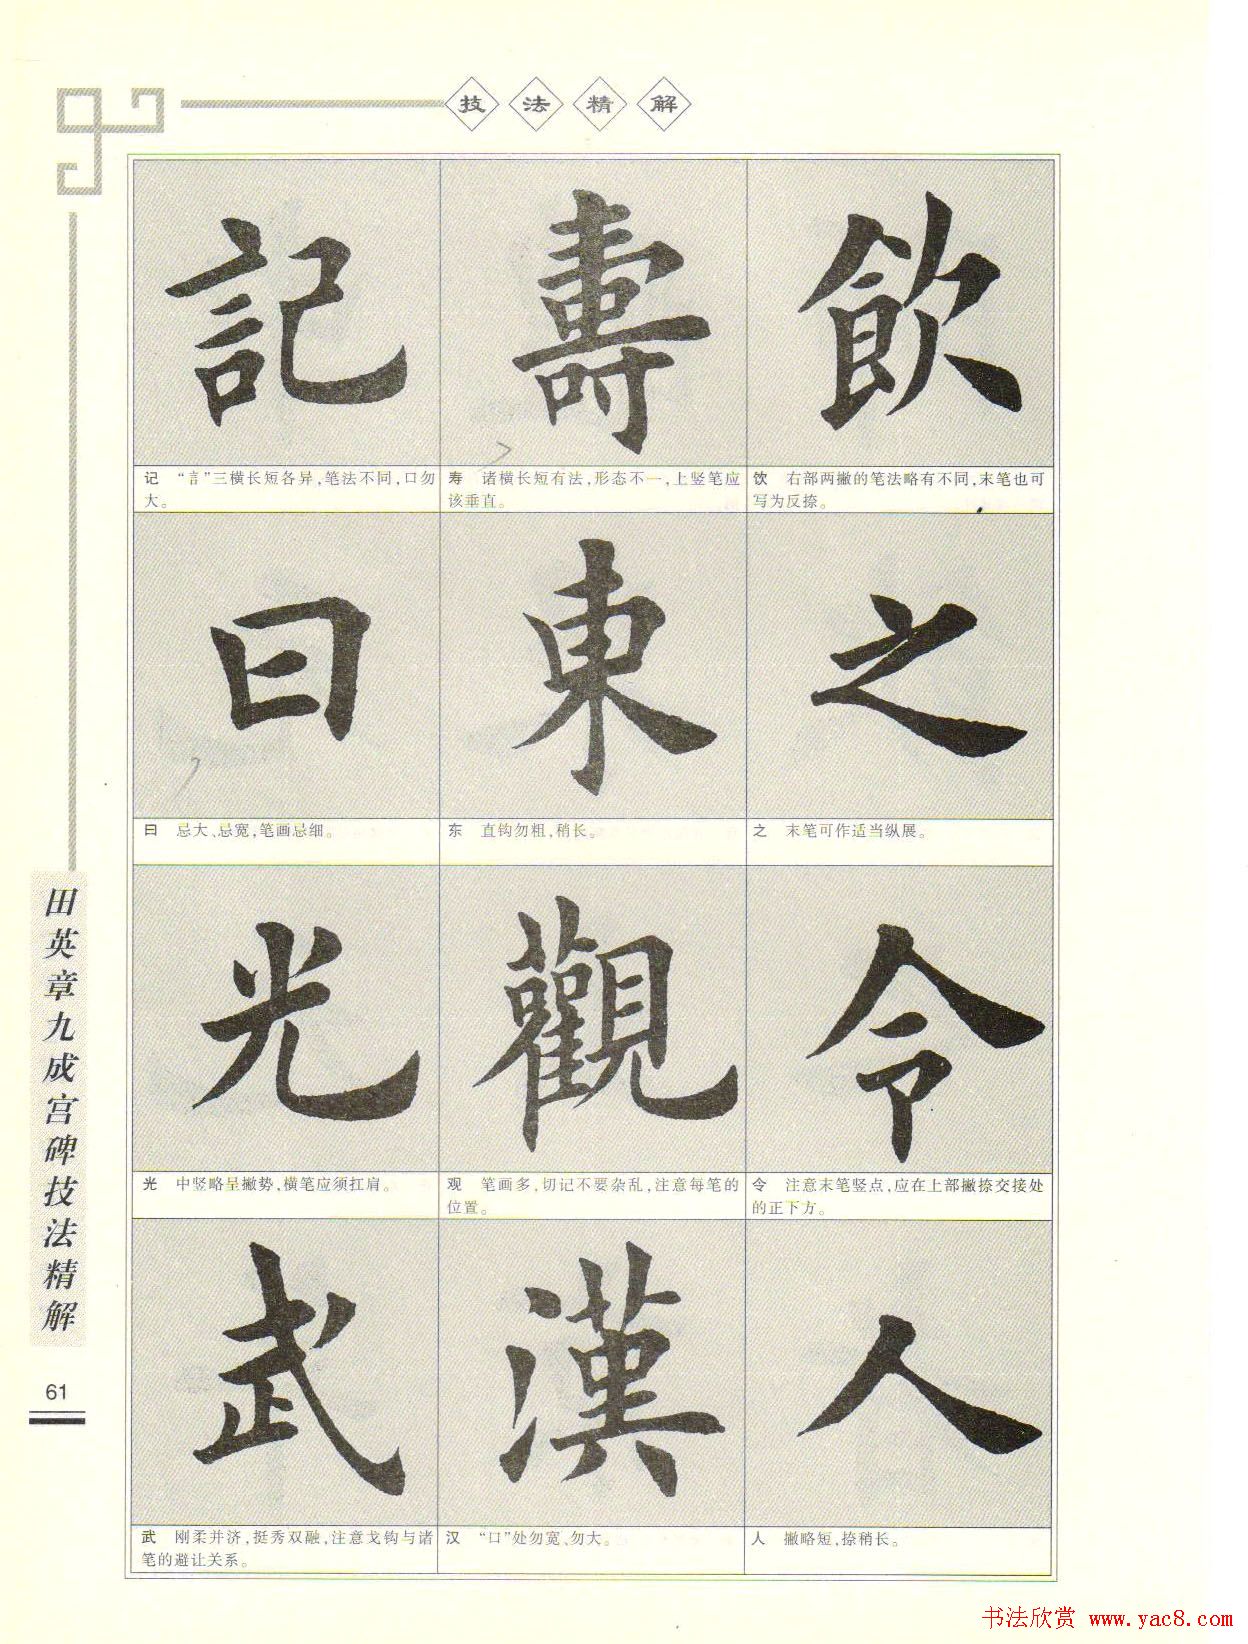 技法精解
飲
壽
記
饮 右部两撇的笔法略有不同,末笔也可
写为反捺。
寿 诸横长短有法,形态不一,上竖笔应
该垂直。
记 “言”三横长短各异,笔法不同,口勿
大。
之
東
曰
之 末笔可作适当纵展。
东 直钩勿粗,稍长。
曰 忌大、忌宽,笔画忌细。
令
觀
光
令 注意末笔竖点,应在上部撇捺交接处
的正下方。
观 笔画多,切记不要杂乱,注意每笔的
位置。
光 中竖略呈撇势,横笔应须扛肩。
人
漢
武
人 撇略短,捺稍长。
汉 “口”处勿宽、勿大。
武 刚柔并济,挺秀双融,注意戈钩与诸
笔的避让关系。
田英章九成宫碑技法精解
61
书法欣赏 www.yac8.com